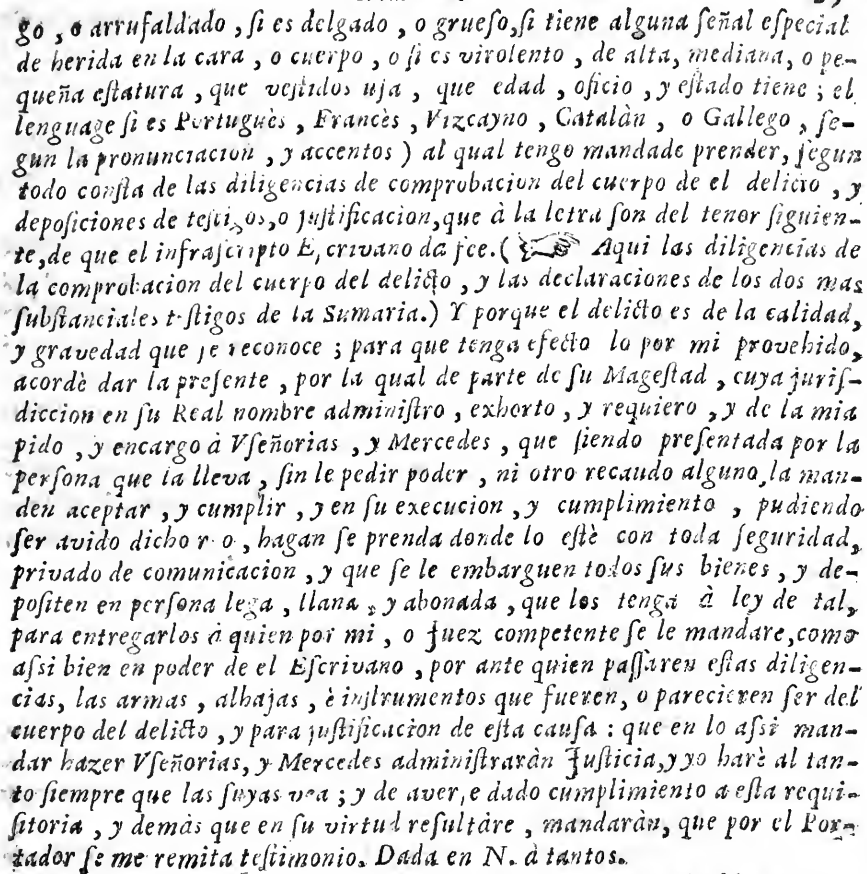 go, o arrufaldado, ſi es delgado, o grueſo, ſi tiene alguna ſeñal eſpecial
de herida en la cara, o cuerpo, o ſi es virolento, de alta, mediana, o pe-
queña eſtatura, que veſtidos uſa, que edad, oficio, y eſtado tiene; el
lenguage ſi es Portuguès, Francès, Vizcayno, Catalàn, o Gallego, ſe-
gun la pronunciacion, y accentos) al qual tengo mandado prender, ſegun
todo conſta de las diligencias de comprobacion del cuerpo de el delicto, y
depoſiciones de teſtigos, o juſtificacion, que à la letra ſon del tenor ſiguien-
te, de que el infraſcripto Eſcrivano da fee. (☞ Aqui las diligencias de
la comprobacion del cuerpo del delicto, y las declaraciones de los dos mas
ſubſtanciales teſtigos de la Sumaria.) Y porque el delicto es de la calidad,
y gravedad que ſe reconoce; para que tenga efecto lo por mi provehido,
acordè dar la preſente, por la qual de parte de ſu Mageſtad, cuya juriſ-
diccion en ſu Real nombre adminiſtro, exhorto, y requiero, y de la mia
pido, y encargo à Vſeñorias, y Mercedes, que ſiendo preſentada por la
perſona que la lleva, ſin le pedir poder, ni otro recaudo alguno, la man-
den aceptar, y cumplir, y en ſu execucion, y cumplimiento, pudiendo
ſer avido dicho r o, hagan ſe prenda donde lo eſtè con toda ſeguridad,
privado de comunicacion, y que ſe le embarguen todos ſus bienes, y de-
poſiten en perſona lega, llana, y abonada, que los tenga à ley de tal,
para entregarlos à quien por mi, o Juez competente ſe le mandare, como
aſsi bien en poder de el Eſcrivano, por ante quien paſſaren eſtas diligen-
cias, las armas, alhajas, è inſtrumentos que fueren, o parecieren ſer del
cuerpo del delicto, y para juſtificacion de eſta cauſa: que en lo aſsi man-
dar hazer Vſeñorias, y Mercedes adminiſtraràn Juſticia, y yo harè al tan-
to ſiempre que las ſuyas vea; y de averſe dado cumplimiento a eſta requi-
ſitoria, y demàs que en ſu virtud reſultàre, mandaràn, que por el Por-
tador ſe me remita teſtimonio. Dada en N. à tantos.